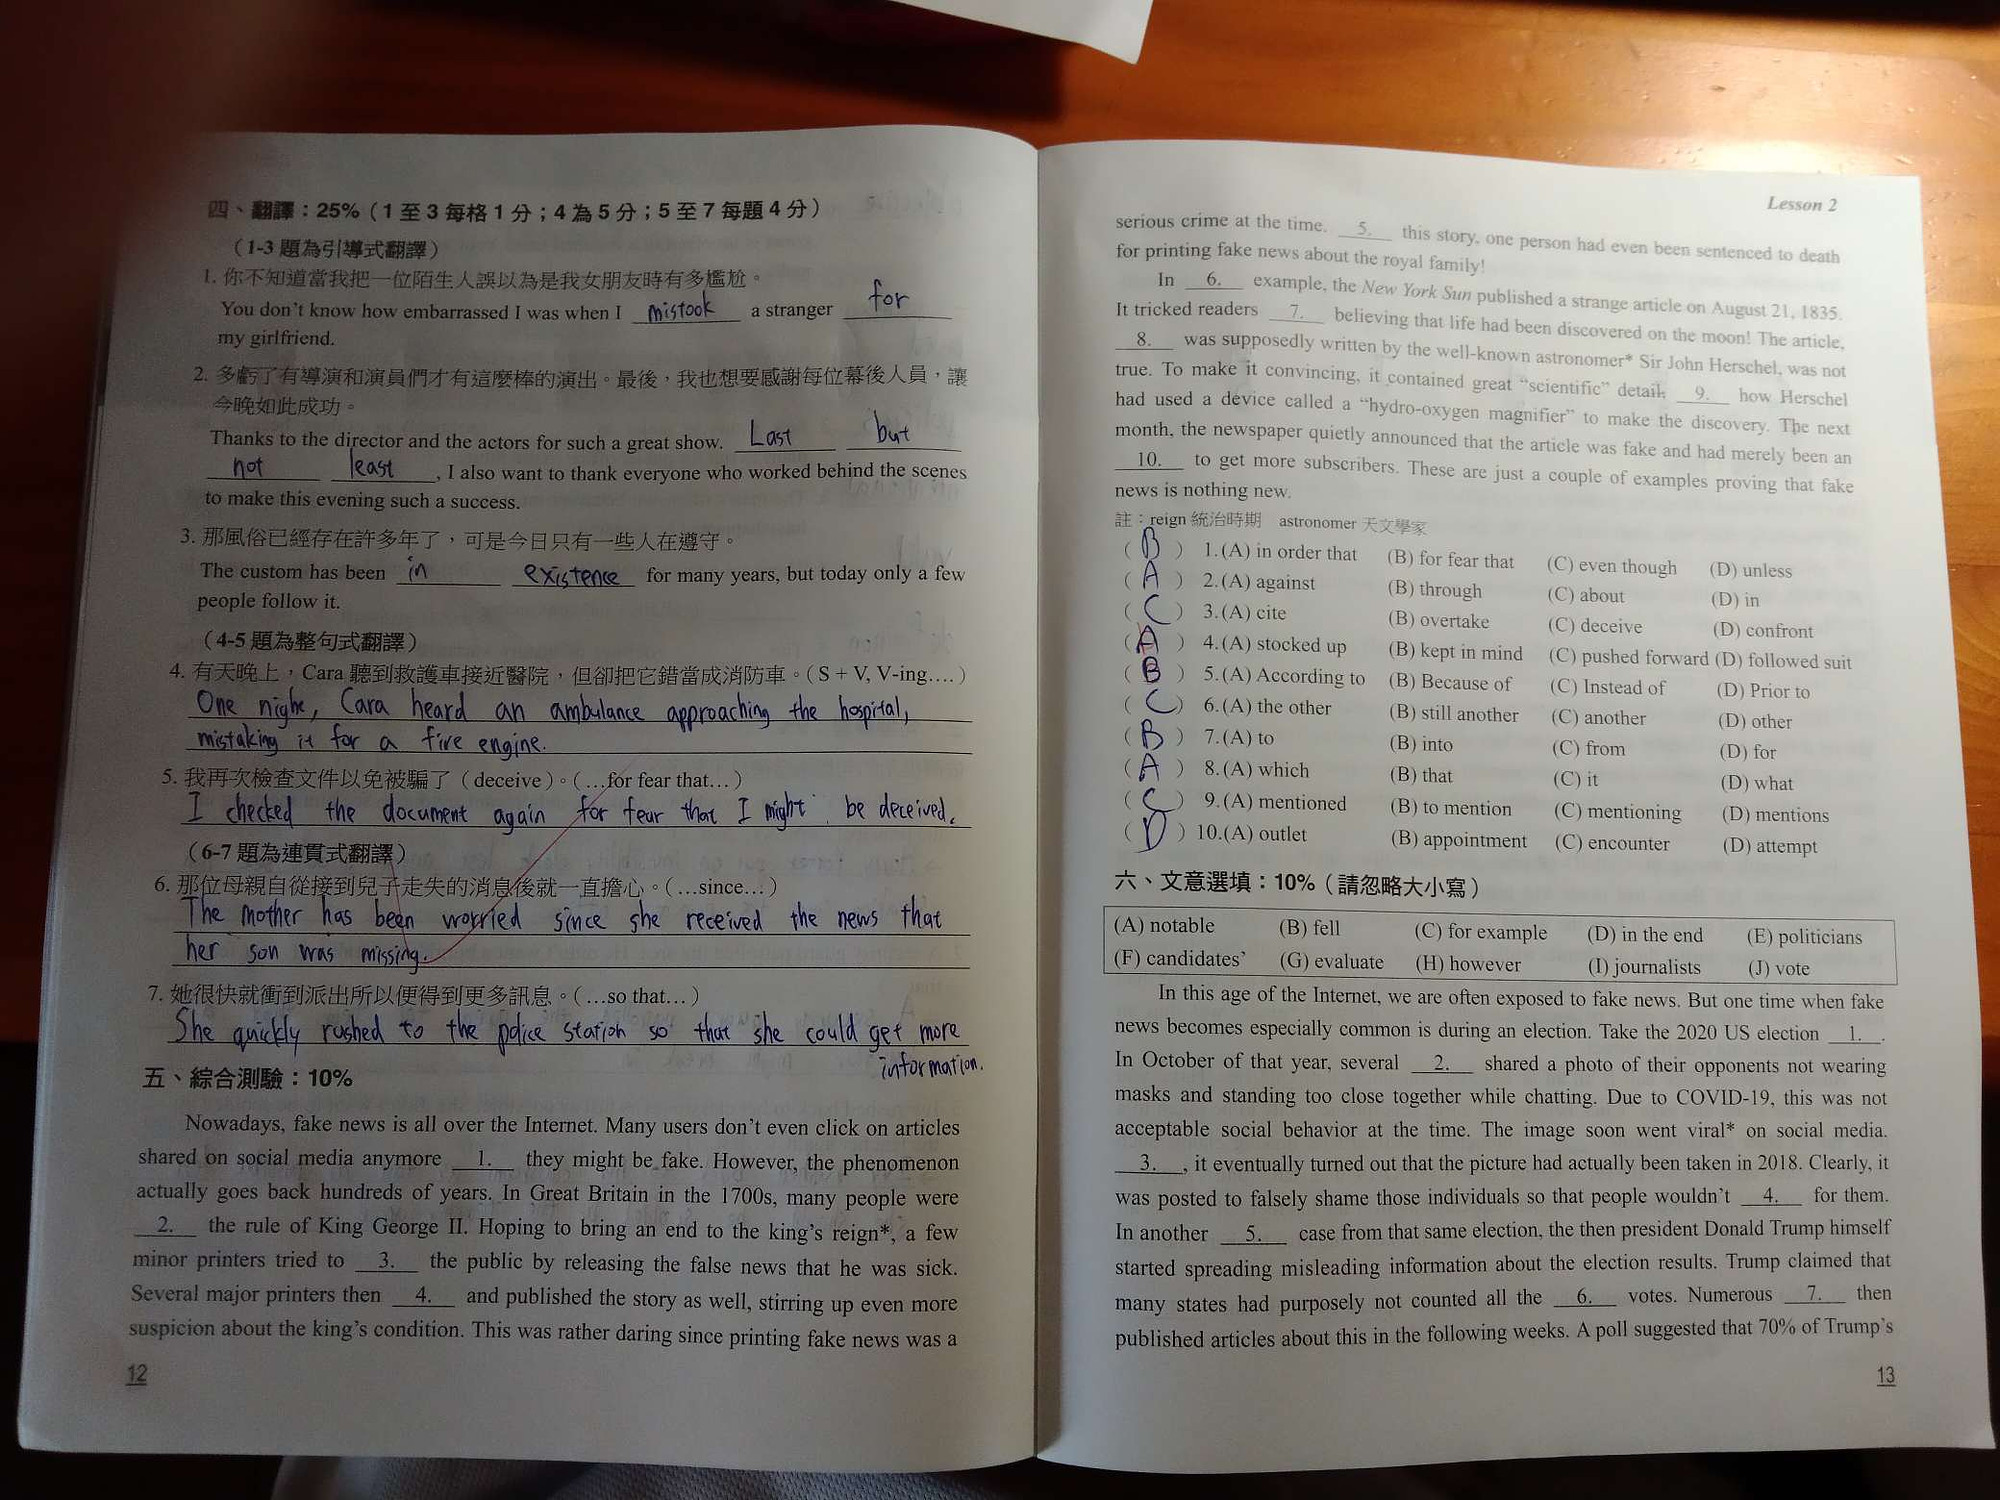 四、翻譯：25%（1 至 3 每格 1 分；4 為 5 分；5 至 7 每題 4 分）
（1-3 題為引導式翻譯）
1. 你不知道當我把一位陌生人誤以為是我女朋友時有多尷尬。
You don't know how embarrassed I was when I mistook a stranger for
my girlfriend.
2. 多虧了有導演和演員們才有這麼棒的演出。最後，我也想要感謝每位幕後人員，讓
今晚如此成功。
Thanks to the director and the actors for such a great show. Last but
not least, I also want to thank everyone who worked behind the scenes
to make this evening such a success.
3. 那風俗已經存在許多年了，可是今日只有一些人在遵守。
The custom has been in existence for many years, but today only a few
people follow it.
（4-5 題為整句式翻譯）
4. 有天晚上，Cara 聽到救護車接近醫院，但卻把它錯當成消防車。（S + V, V-ing....）
One nighe, Cara heard an ambulance approaching the hospital,
mistaking it for a fire engine.
5. 我再次檢查文件以免被騙了（deceive）。（…for fear that…）
I checked the document again for fear that I might be deceived.
（6-7 題為連貫式翻譯）
6. 那位母親自從接到兒子走失的消息後就一直擔心。（…since…）
The mother has been worried since she received the news that
her son was missing.
7. 她很快就衝到派出所以便得到更多訊息。（…so that…）
She quickly rushed to the police station so that she could get more
information.
五、綜合測驗：10%
Nowadays, fake news is all over the Internet. Many users don't even click on articles
shared on social media anymore 1. they might be fake. However, the phenomenon
actually goes back hundreds of years. In Great Britain in the 1700s, many people were
2. the rule of King George II. Hoping to bring an end to the king's reign*, a few
minor printers tried to 3. the public by releasing the false news that he was sick.
Several major printers then 4. and published the story as well, stirring up even more
suspicion about the king's condition. This was rather daring since printing fake news was a
12
Lesson 2
serious crime at the time. 5. this story, one person had even been sentenced to death
for printing fake news about the royal family!
In 6. example, the New York Sun published a strange article on August 21, 1835.
It tricked readers 7. believing that life had been discovered on the moon! The article,
8. was supposedly written by the well-known astronomer* Sir John Herschel, was not
true. To make it convincing, it contained great "scientific" detail, 9. how Herschel
had used a device called a "hydro-oxygen magnifier" to make the discovery. The next
month, the newspaper quietly announced that the article was fake and had merely been an
10. to get more subscribers. These are just a couple of examples proving that fake
news is nothing new.
註：reign 統治時期 astronomer 天文學家
( B ) 1. (A) in order that (B) for fear that (C) even though (D) unless
( A ) 2. (A) against (B) through (C) about (D) in
( C ) 3. (A) cite (B) overtake (C) deceive (D) confront
( A ) 4. (A) stocked up (B) kept in mind (C) pushed forward (D) followed suit
( B ) 5. (A) According to (B) Because of (C) Instead of (D) Prior to
( C ) 6. (A) the other (B) still another (C) another (D) other
( B ) 7. (A) to (B) into (C) from (D) for
( A ) 8. (A) which (B) that (C) it (D) what
( C ) 9. (A) mentioned (B) to mention (C) mentioning (D) mentions
( D ) 10. (A) outlet (B) appointment (C) encounter (D) attempt
六、文意選填：10%（請忽略大小寫）
(A) notable (B) fell (C) for example (D) in the end (E) politicians
(F) candidates' (G) evaluate (H) however (I) journalists (J) vote
In this age of the Internet, we are often exposed to fake news. But one time when fake
news becomes especially common is during an election. Take the 2020 US election 1. .
In October of that year, several 2. shared a photo of their opponents not wearing
masks and standing too close together while chatting. Due to COVID-19, this was not
acceptable social behavior at the time. The image soon went viral* on social media.
3. , it eventually turned out that the picture had actually been taken in 2018. Clearly, it
was posted to falsely shame those individuals so that people wouldn't 4. for them.
In another 5. case from that same election, the then president Donald Trump himself
started spreading misleading information about the election results. Trump claimed that
many states had purposely not counted all the 6. votes. Numerous 7. then
published articles about this in the following weeks. A poll suggested that 70% of Trump's
13